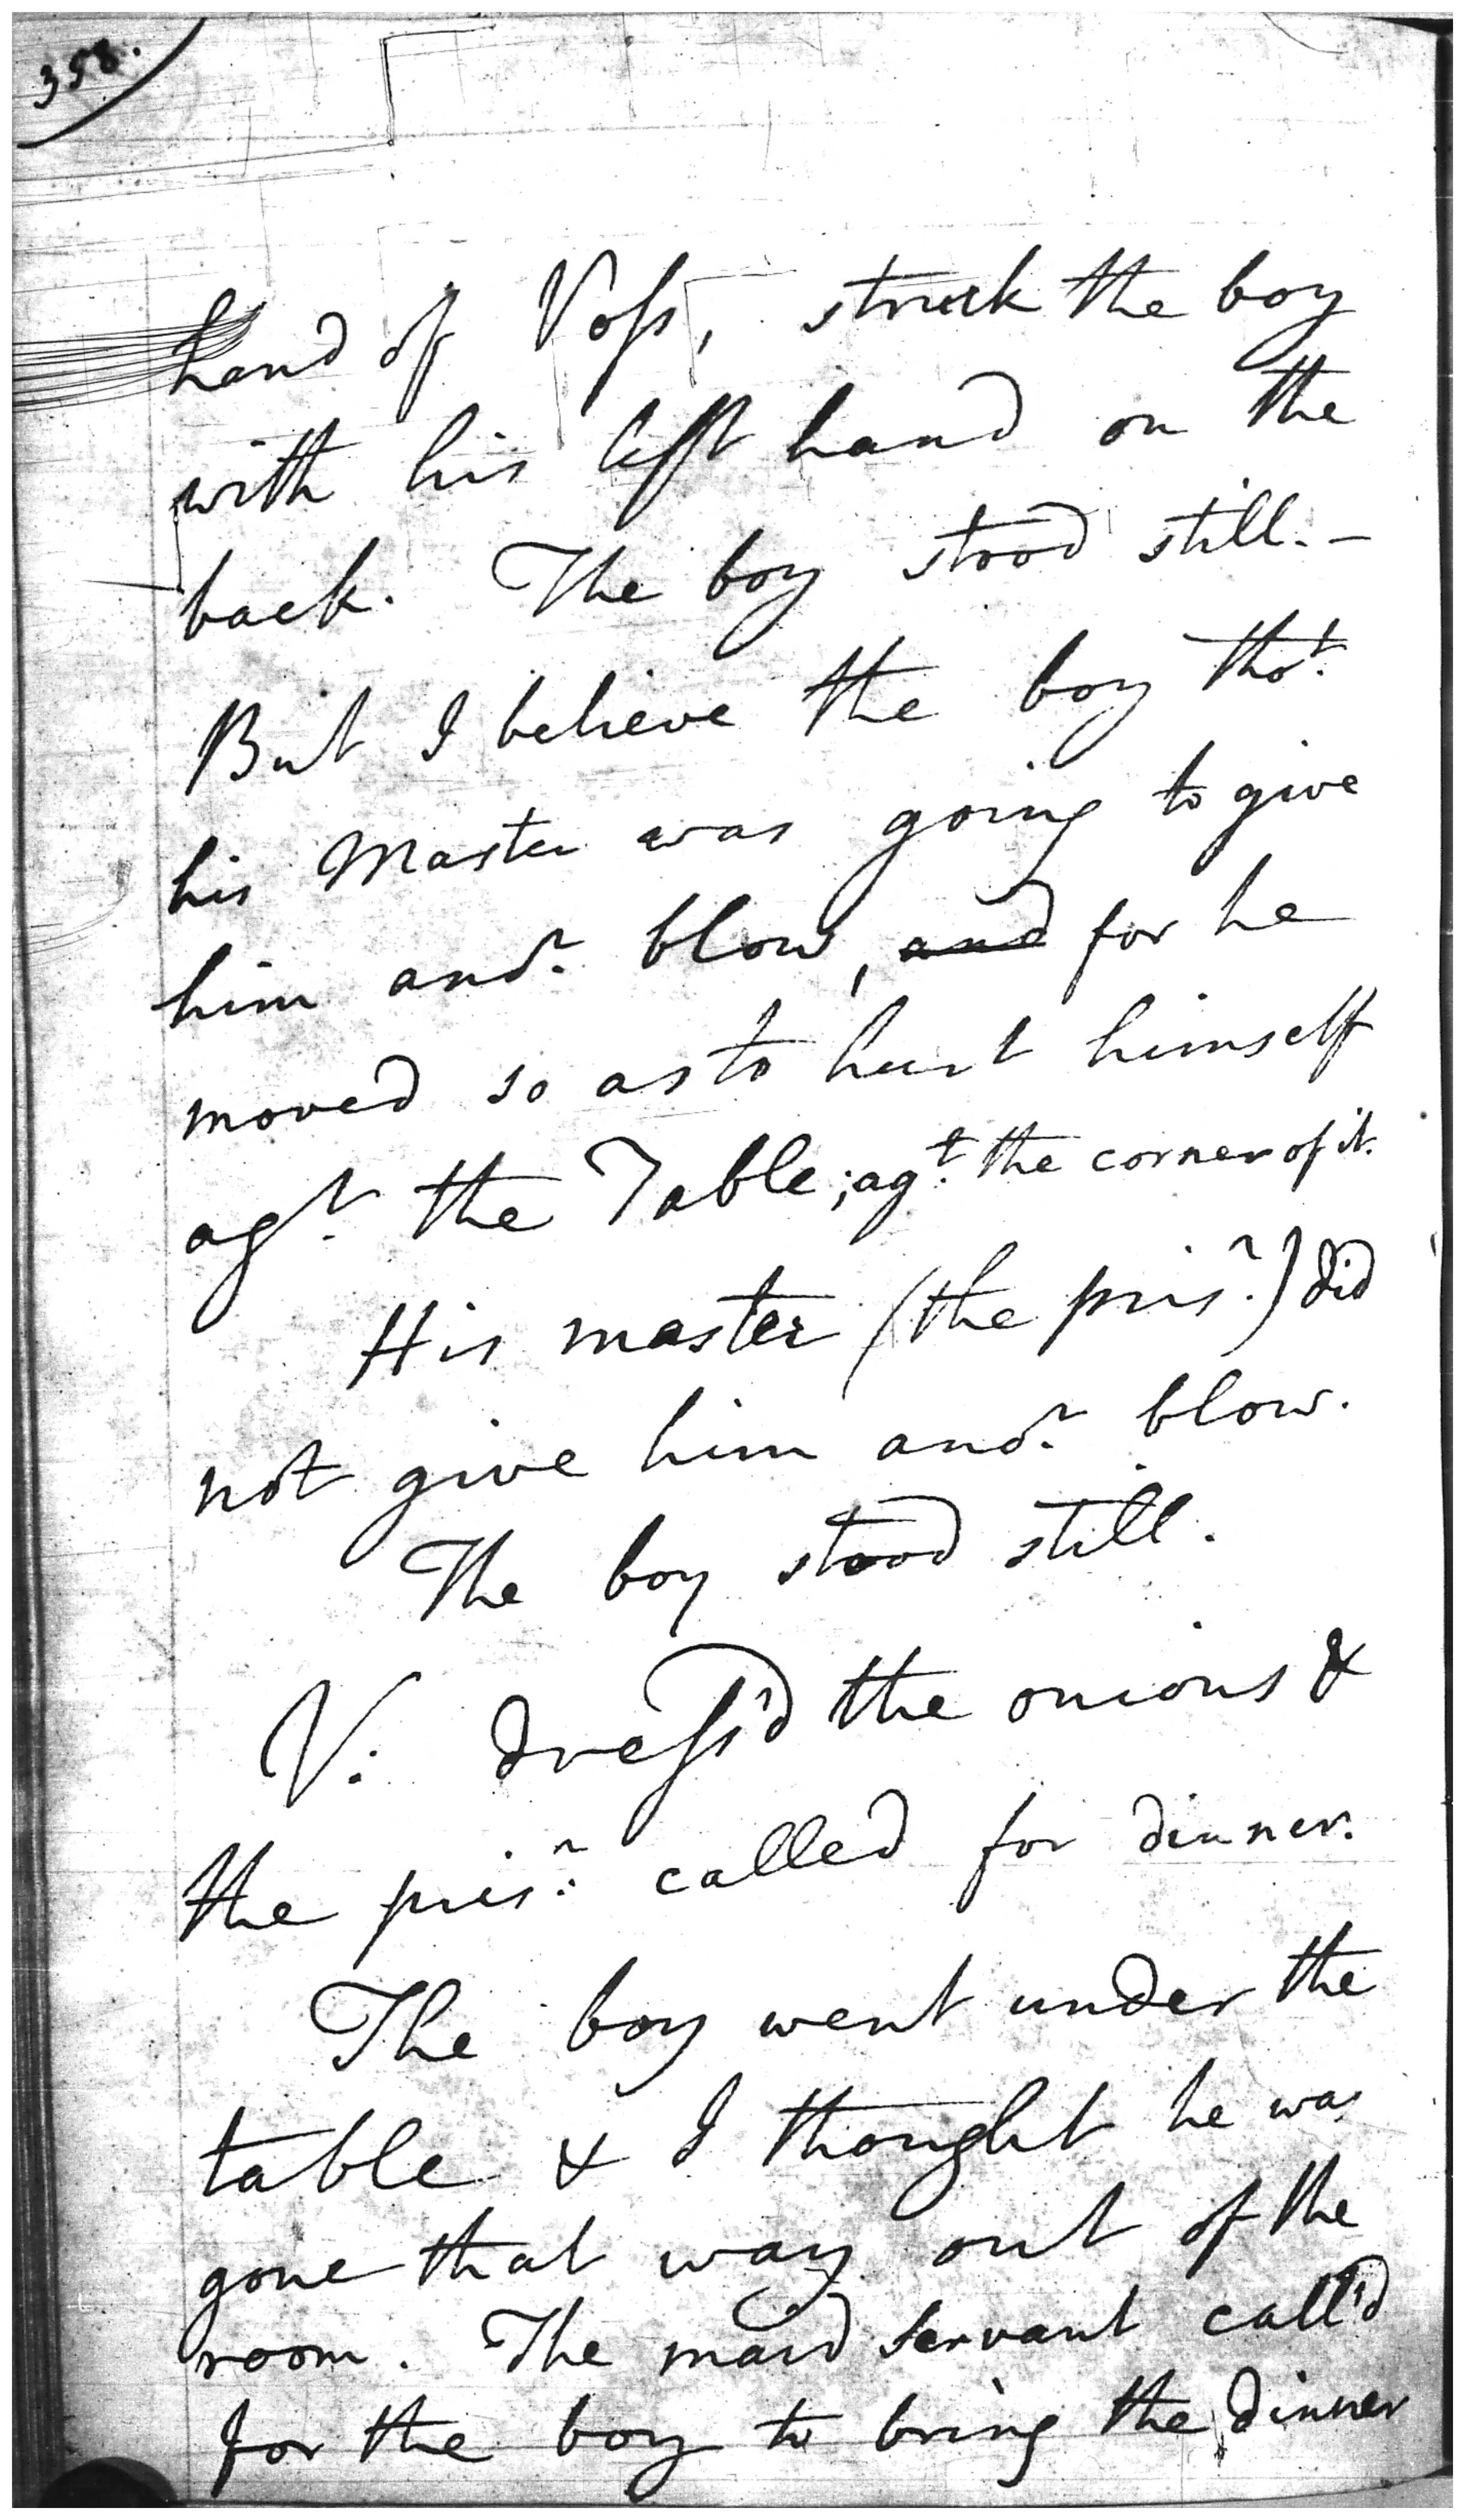 358.
hand of Voſs, struck the boy
with his left hand on the
back. The boy stood still. –
But I believe the boy thoᵗ.
his Master was going to give
him anoʳ. blow, ~~and~~ for he
moved so as to hurt himself
agᵗ. the Table; agᵗ. the corner of it.
His master (the prisʳ.) did
not give him anoʳ. blow.
The boy stood still.
V: dreſs'd the onions &
the prisʳ. called for dinner.
The boy went under the
table & I thought he was
gone that way out of the
room. The maid servant call'd
for the boy to bring the dinner